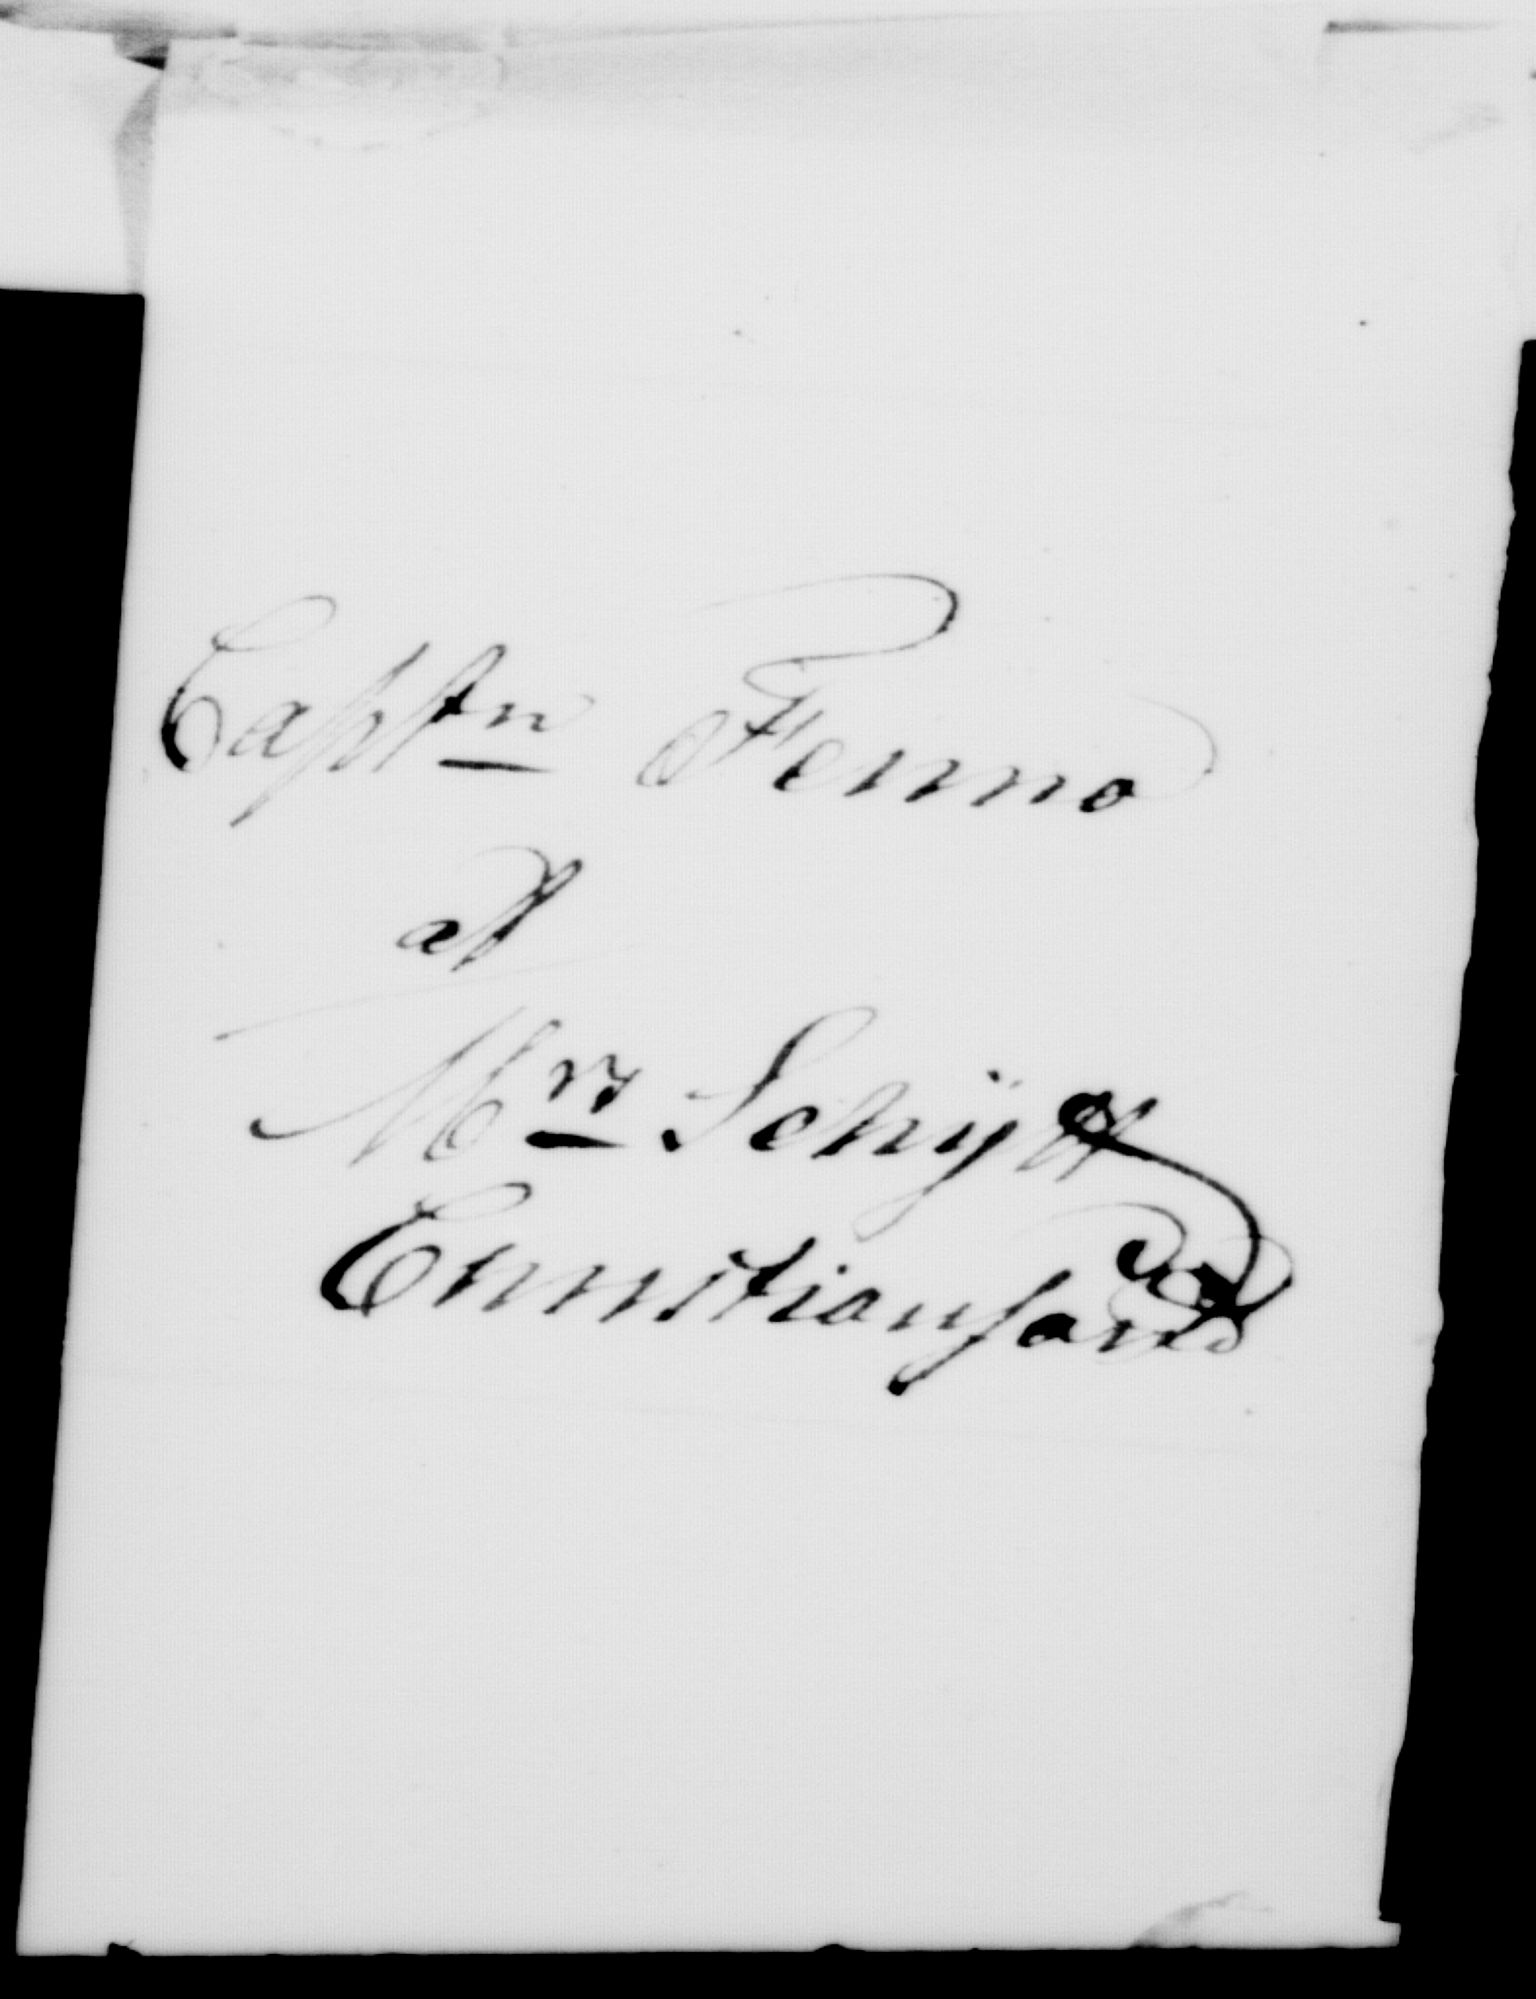 Captn Fenno
at
Mrs Schÿtt
Cnnistiansand